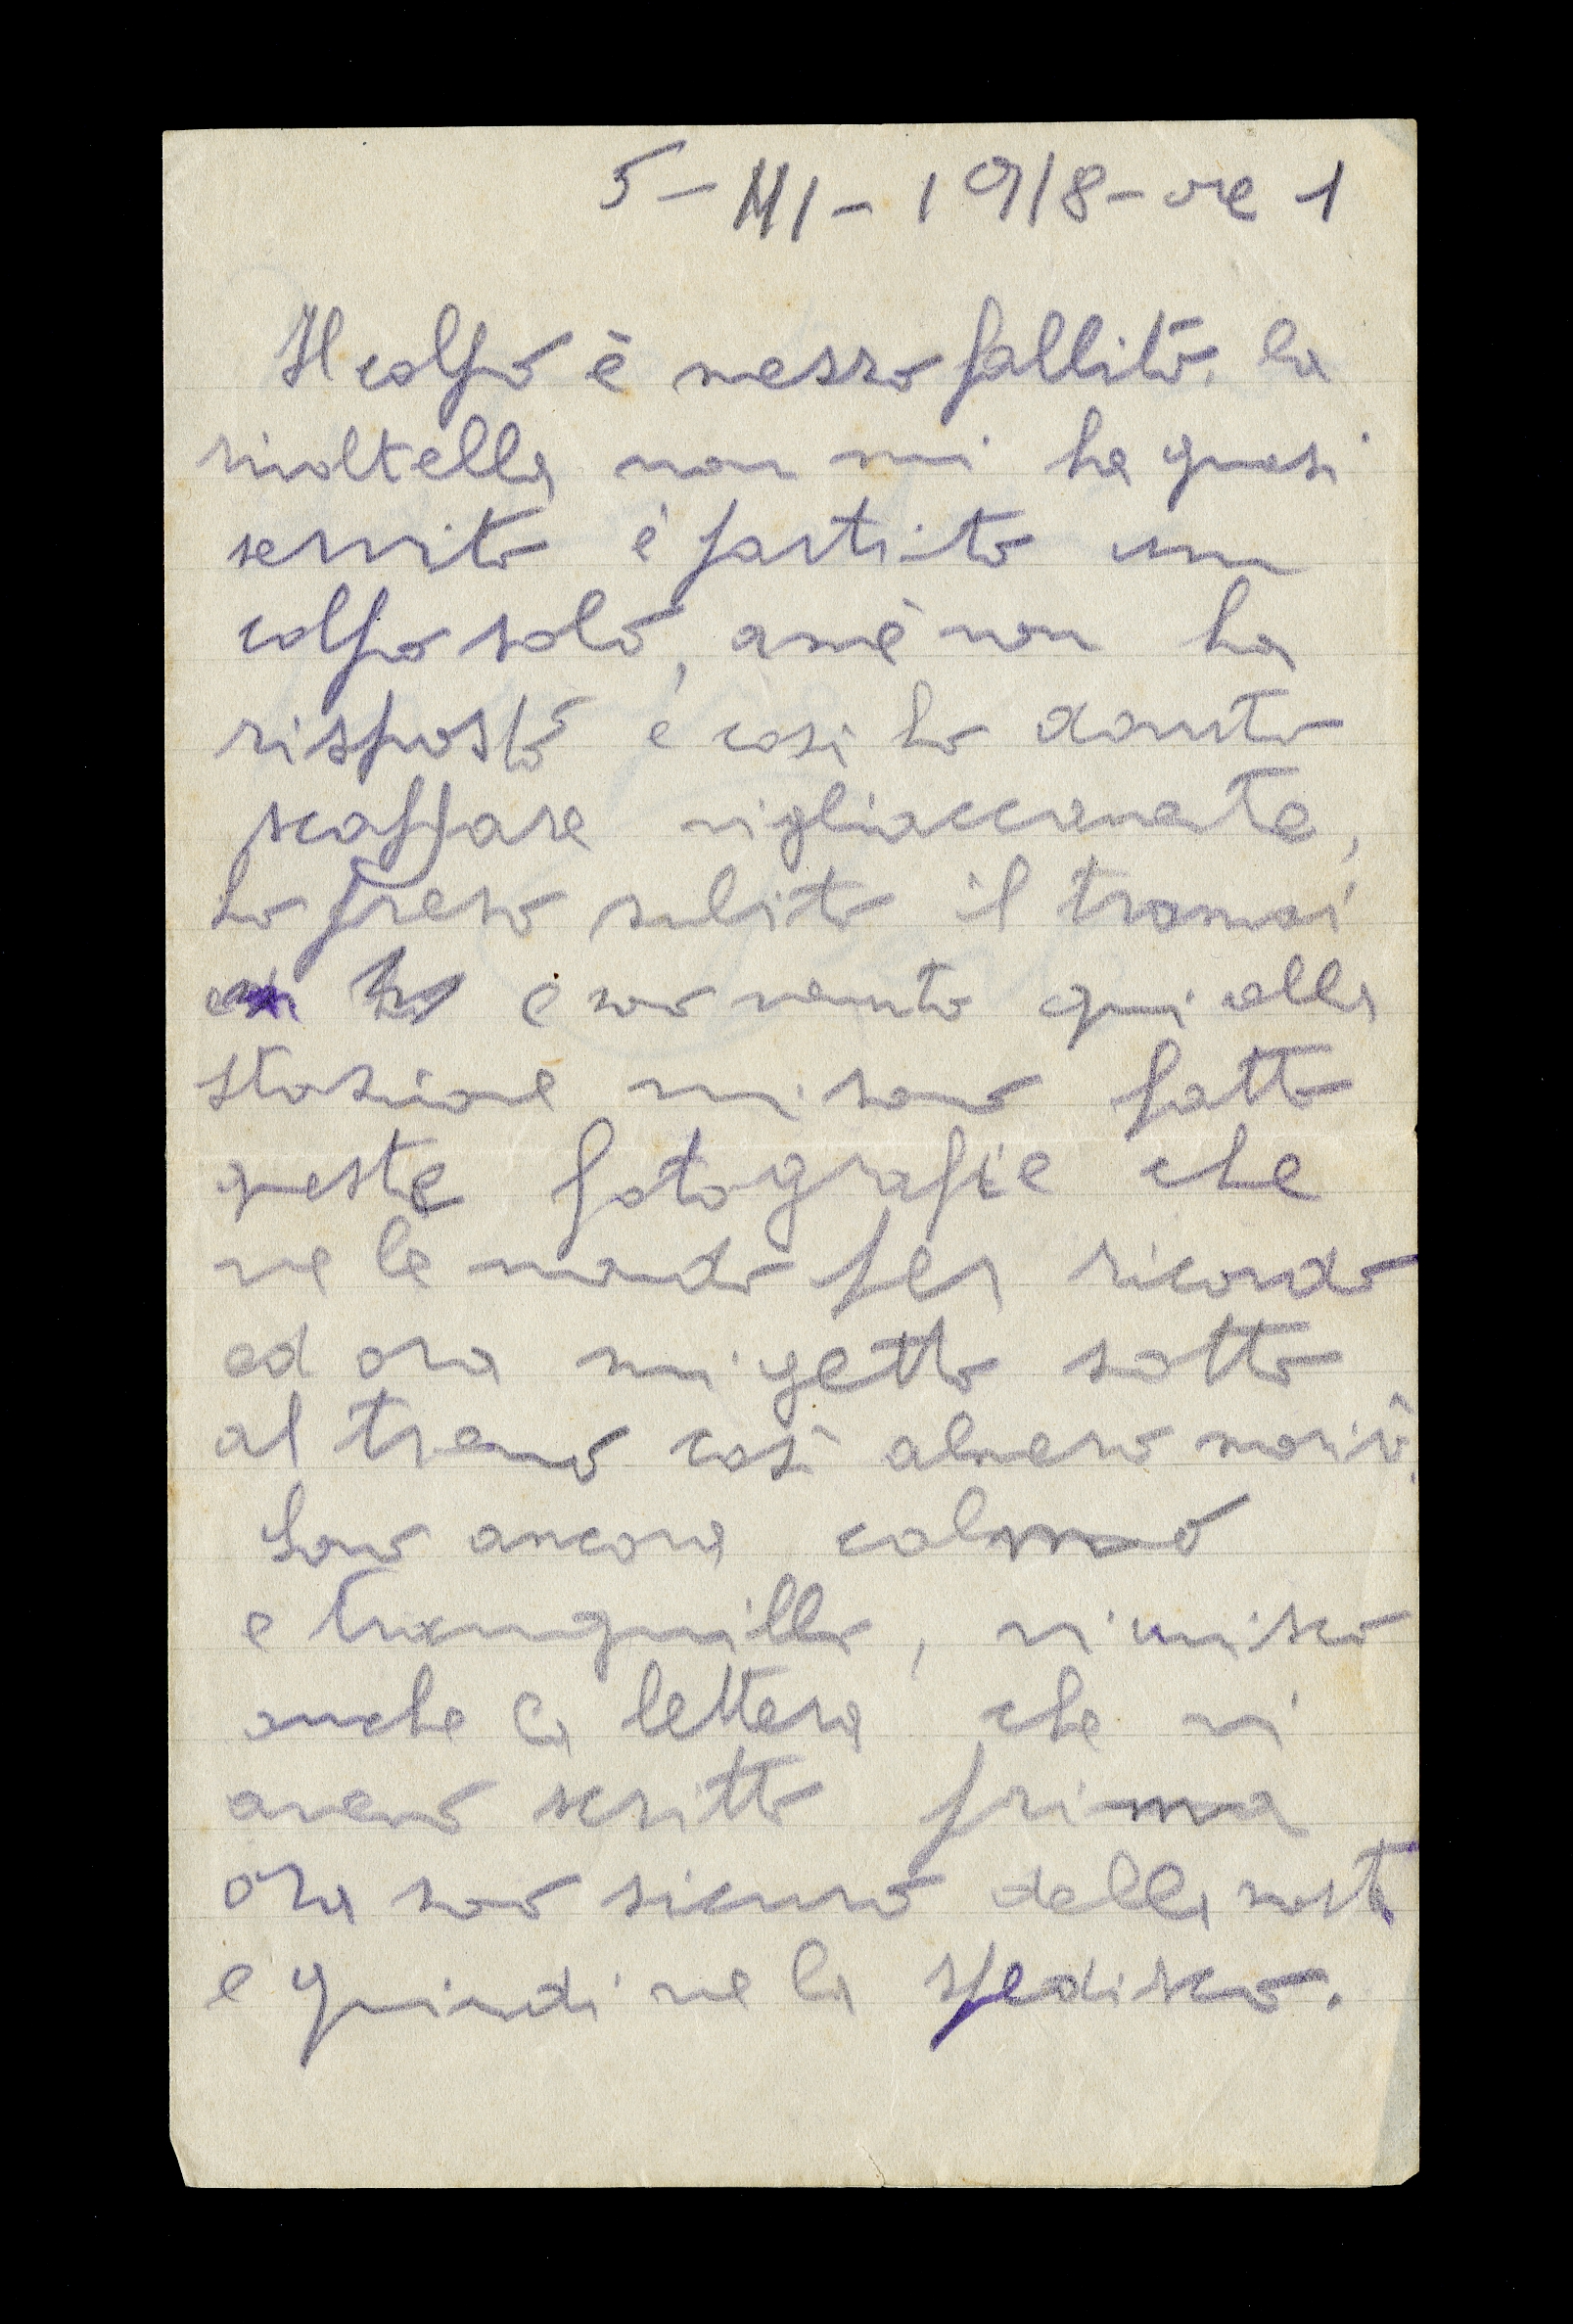 5-VII-1918-ore 1
Il colpo è mezzo fallito. la
rivoltella non mi ha quasi
servito è partito un
colpo solo, a me non ha
risposto e così ho dovuto
scappare vigliaccamente,
ho preso subito il tramvai
e sono venuto qui alla
stazione mi sono fatto
queste fotografie che
ve le mando per ricordo
ed ora mi getto sotto
al treno così almeno morirò.
Sono ancora calmo
e tranquillo, vi unisco
anche la lettera che vi
avevo scritto prima
ora sono sicuro della morte
e quindi ve la spedisco.